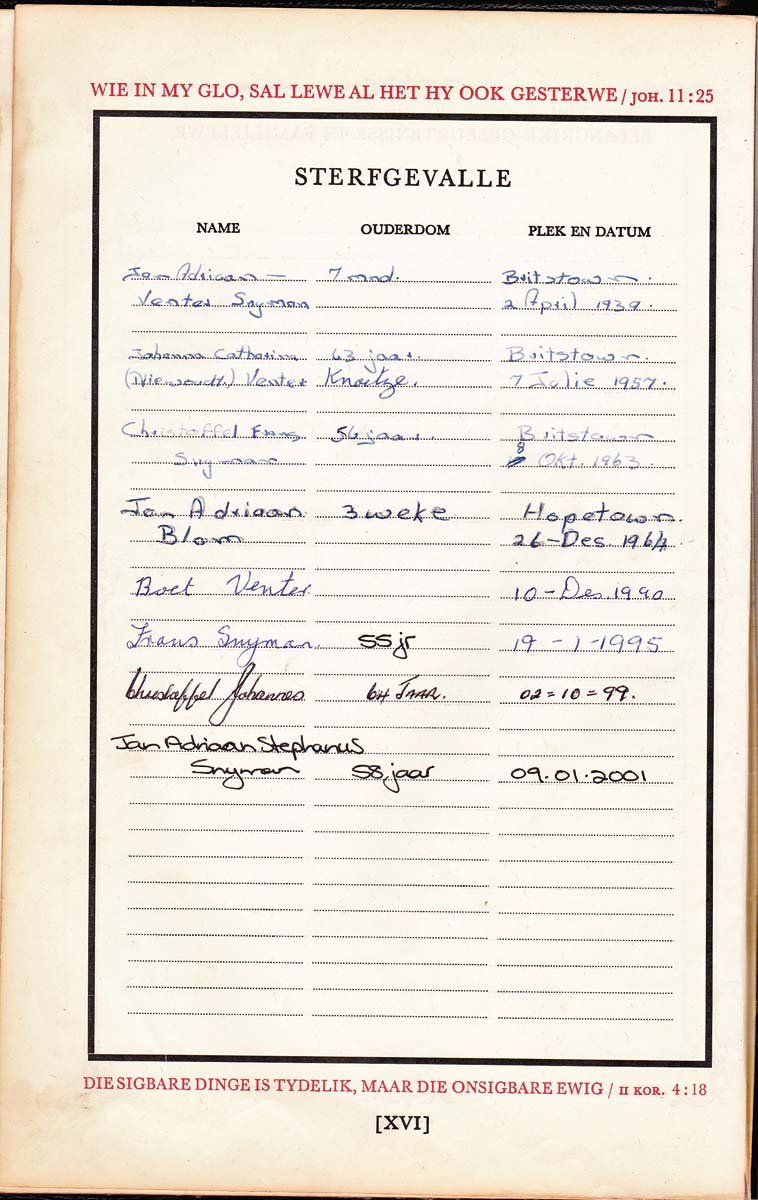 WIE IN MY GLO, SAL LEWE AL HET HY OOK GESTERWE / JOH. 11:25
STERFGEVALLE
NAME OUDERDOM PLEK EN DATUM
Jan Adriaan — 7 mnd. Britstown.
Venter Snyman 2 April 1939.
Johanna Catharina 63 jaar. Britstown.
(Niewoudt) Venter Knoetze. 7 Julie 1957.
Christoffel Frans 56 jaar. Britstown
Snyman 8 Okt. 1963.
Jan Adriaan 3 weke Hopetown.
Blom 26-Des. 1964.
Boet Venter 10-Des. 1990
Frans Snyman. 55 jr 19-1-1995
Christoffel Johannes 64 JAAR. 02=10=99.
Jan Adriaan Stephanus
Snyman 58 jaar 09.01.2001
DIE SIGBARE DINGE IS TYDELIK, MAAR DIE ONSIGBARE EWIG / II KOR. 4:18
[XVI]